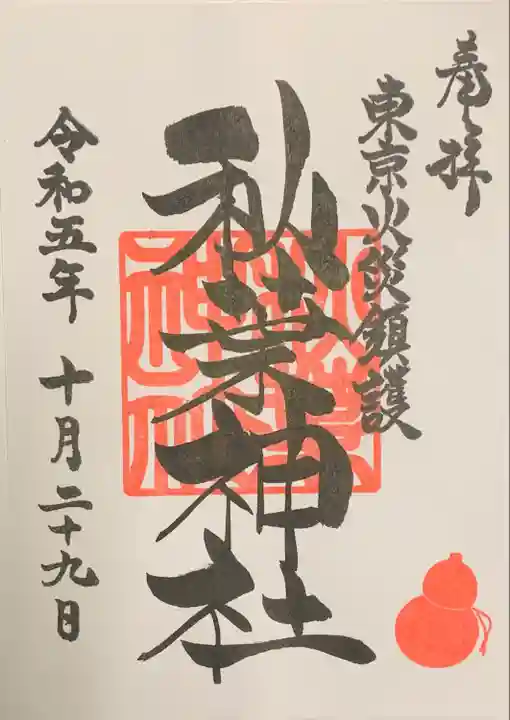 奉拝
東京火災鎮護
秋葉神社
令和五年 十月二十九日